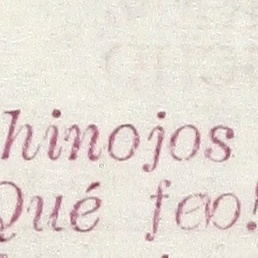 hinojos
Qué feo!